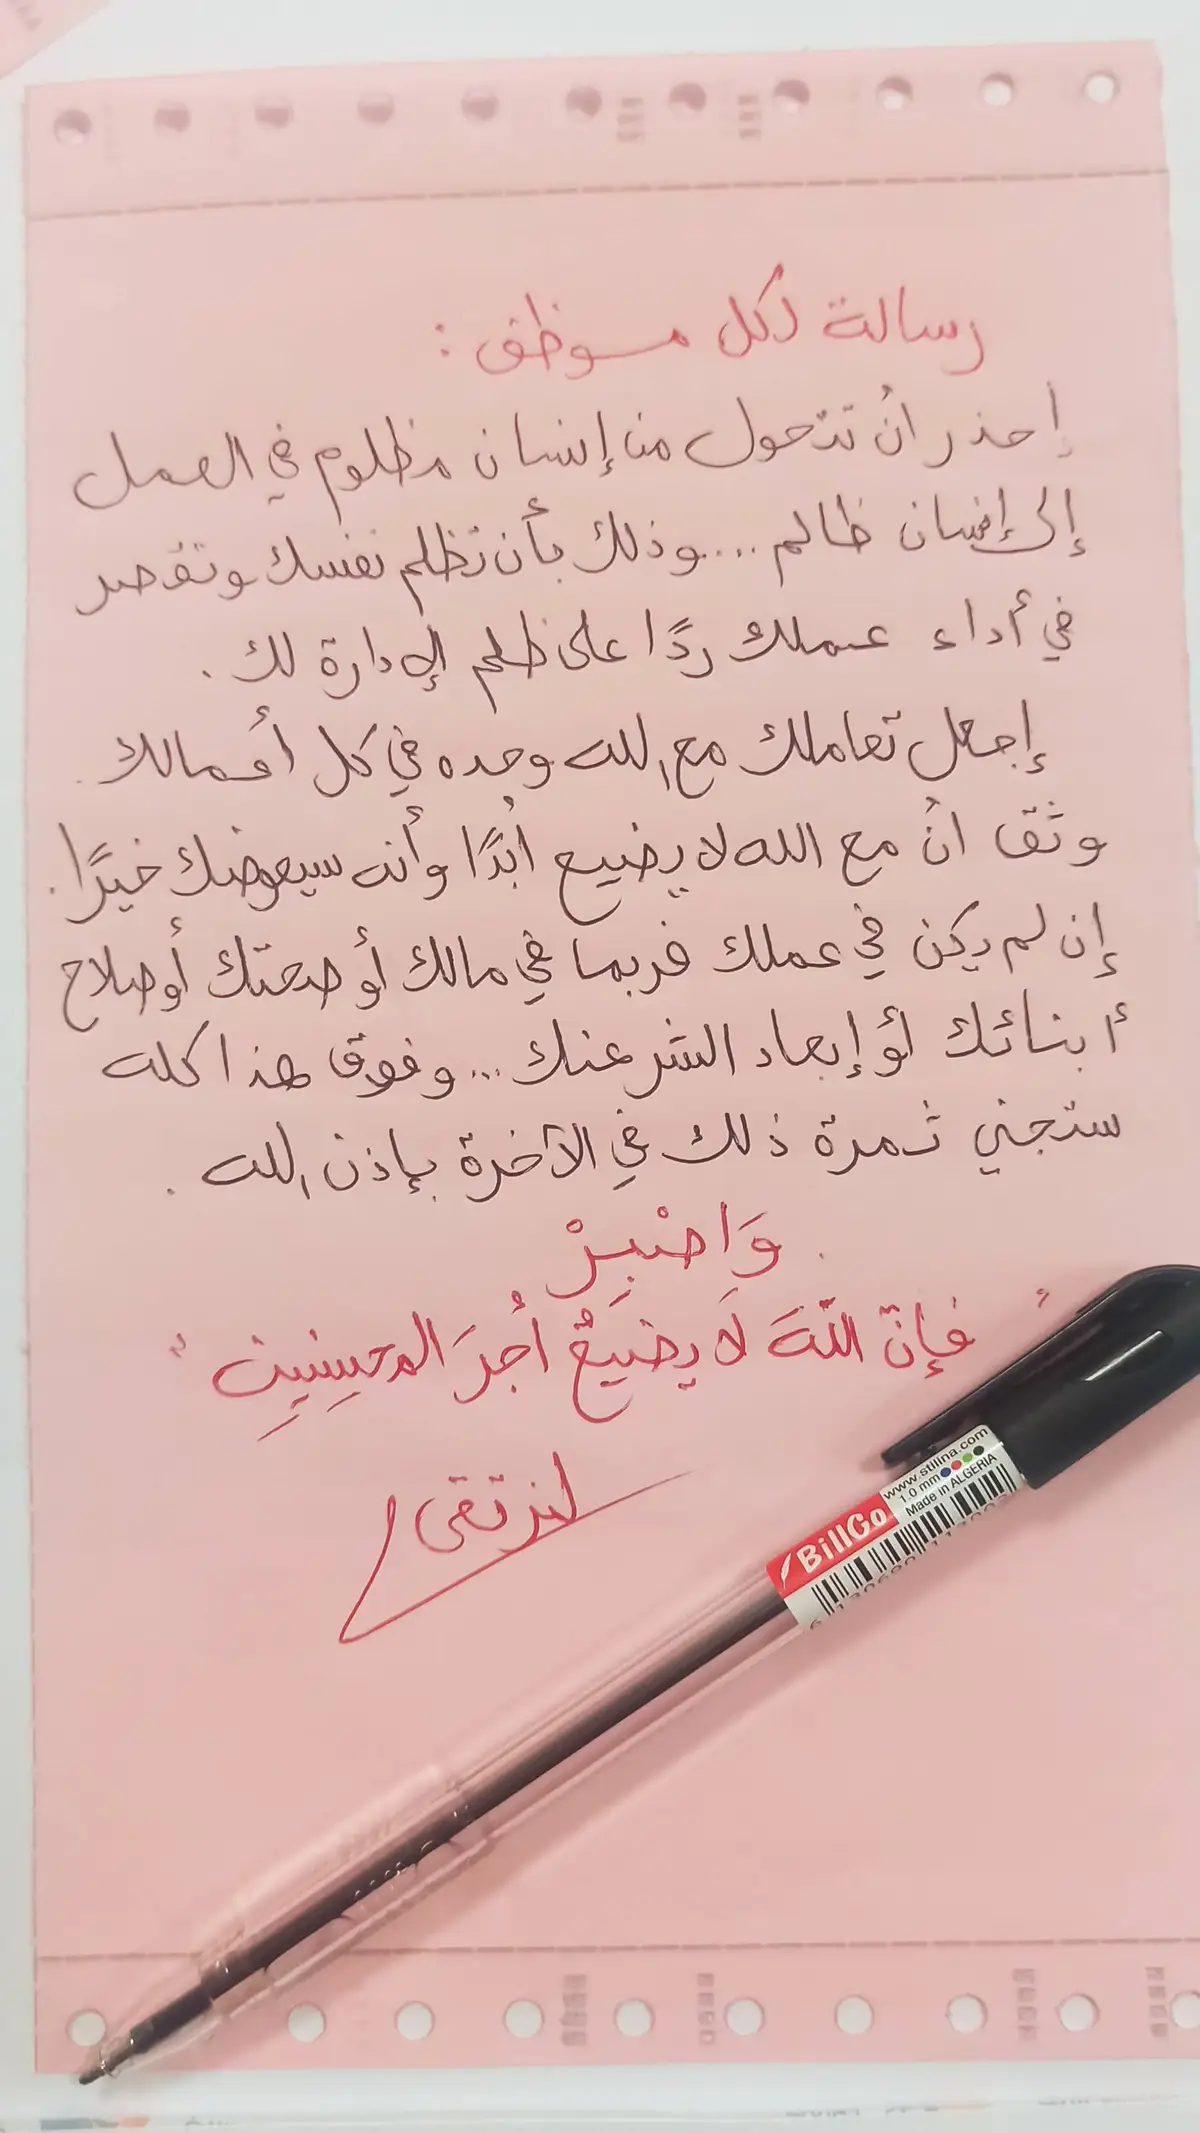 رسالة لكل موظف :
إحذر أن تتحول من إنسان مظلوم في العمل
إلى إنسان ظالم ... وذلك بأن تظلم نفسك وتقصر
في أداء عملك ردًا على ظلم الإدارة لك .
إجعل تعاملك مع الله وحده في كل أعمالك .
وثق أن مع الله لا يضيع أبدًا وأنه سيعوضك خيرًا .
إن لم يكن في عملك فربما في مالك أو صحتك أو صلاح
أبنائك أو إبعاد الشر عنك ... وفوق هذا كله
ستجني ثمرة ذلك في الآخرة بإذن الله .
وَاصْبِرْ
" فَإِنَّ اللَّهَ لَا يُضِيعُ أَجْرَ المحسِنِينَ "
لنرتقي
www.stilina.com
1.0 mm
Made in ALGERIA
BillGo